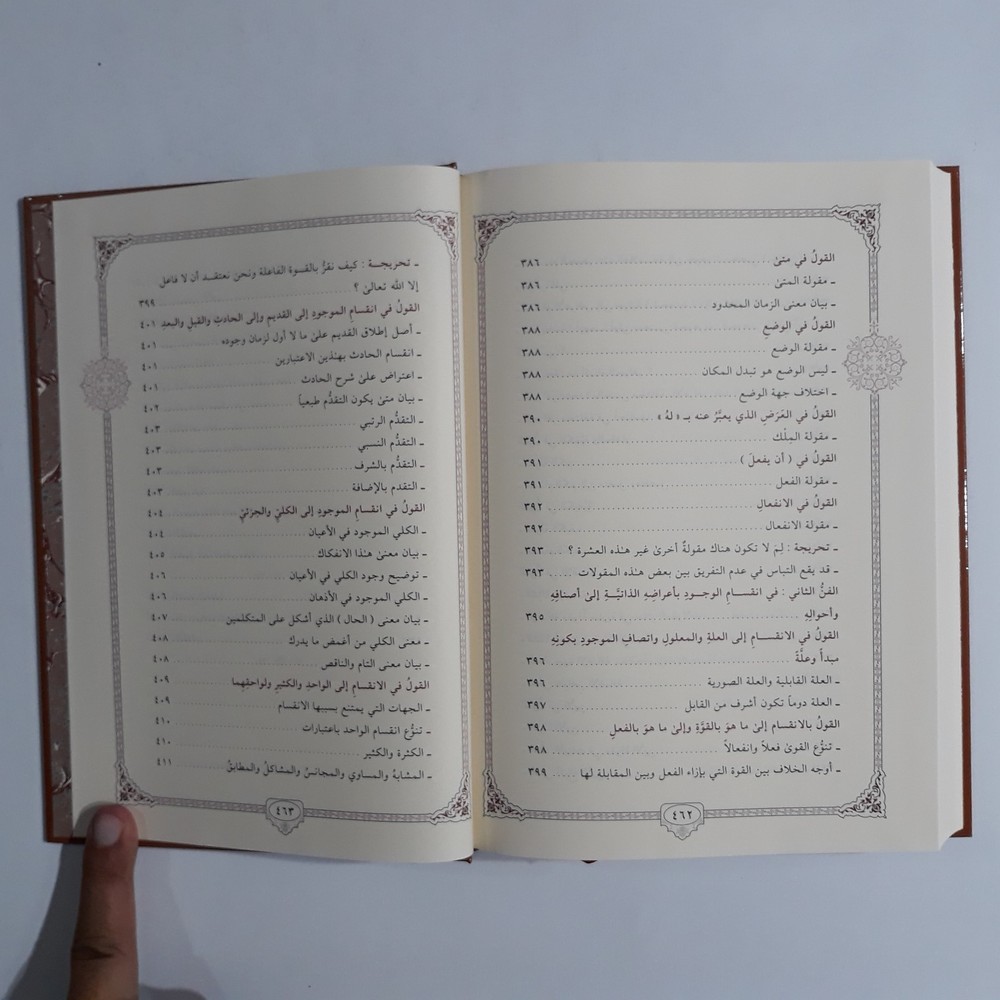 القولُ في متىٰ ........ ٣٨٦
ـ مقولة المتىٰ ........ ٣٨٦
ـ بيان معنى الزمان المحدود ........ ٣٨٦
القولُ في الوضعِ ........ ٣٨٨
ـ مقولة الوضع ........ ٣٨٨
ـ ليس الوضع هو تبدل المكان ........ ٣٨٨
ـ اختلاف جهة الوضع ........ ٣٨٨
القولُ في العَرَضِ الذي يعبَّرُ عنه بـ « لهُ » ........ ٣٩٠
ـ مقولة المِلْك ........ ٣٩٠
القولُ في ( أن يفعلَ ) ........ ٣٩١
ـ مقولة الفعل ........ ٣٩١
القولُ في الانفعالِ ........ ٣٩٢
ـ مقولة الانفعال ........ ٣٩٢
ـ تحريجة : لِمَ لا تكون هناك مقولةٌ أخرىٰ غير هـٰذه العشرة ؟ ... ٣٩٣
ـ قد يقع التباس في عدم التفريق بين بعض هـٰذه المقولات ..... ٣٩٣
الفنُّ الثاني : في انقسـامِ الوجـودِ بأعراضِهِ الذاتيَّـةِ إلىٰ أصنافِهِ
وأحوالِهِ ........ ٣٩٥
القولُ في الانقسـامِ إلى العلةِ والمعلولِ واتصافِ الموجودِ بكونِهِ
مبدأً وعلَّةً ........ ٣٩٦
ـ العلة القابلية والعلة الصورية ........ ٣٩٦
ـ العلة دوماً تكون أشرف من القابل ........ ٣٩٧
القولُ بالانقسامِ إلىٰ ما هوَ بالقوَّةِ وإلىٰ ما هوَ بالفعلِ ........ ٣٩٨
ـ تنوُّع القوىٰ فعلاً وانفعالاً ........ ٣٩٨
ـ أوجه الخلاف بين القوة التي بإزاء الفعل وبين المقابلة لها ..... ٣٩٩
٤٦٢
ـ تحريجـة : كيف نقرُّ بالقـوة الفاعلة ونحن نعتقـد أن لا فاعل
إلا الله تعالىٰ ؟ ........ ٣٩٩
القولُ في انقسامِ الموجودِ إلى القديمِ وإلى الحادثِ والقبلِ والبعدِ ٤٠١
ـ أصل إطلاق القديم علىٰ ما لا أول لزمان وجوده ........ ٤٠١
ـ انقسام الحادث بهـٰذين الاعتبارين ........ ٤٠١
ـ اعتراض علىٰ شرح الحادث ........ ٤٠١
ـ بيان متىٰ يكون التقدُّم طبعياً ........ ٤٠٢
ـ التقدُّم الرتبي ........ ٤٠٣
ـ التقدُّم النسبي ........ ٤٠٣
ـ التقدُّم بالشرف ........ ٤٠٣
ـ التقدم بالإضافة ........ ٤٠٣
القولُ في انقسامِ الموجودِ إلى الكليِّ والجزئيِّ ........ ٤٠٤
ـ الكلي الموجود في الأعيان ........ ٤٠٤
ـ بيان معنىٰ هـٰذا الانفكاك ........ ٤٠٥
ـ توضيح وجود الكلي في الأعيان ........ ٤٠٦
ـ الكلي الموجود في الأذهان ........ ٤٠٦
ـ بيان معنى ( الحال ) الذي أشكل على المتكلمين ........ ٤٠٧
ـ معنى الكلي من أغمض ما يدرك ........ ٤٠٨
ـ بيان معنى التام والناقص ........ ٤٠٨
القولُ في الانقسامِ إلى الواحدِ والكثيرِ ولواحقِهِما ........ ٤٠٩
ـ الجهات التي يمتنع بسببها الانقسام ........ ٤٠٩
ـ تنوُّع انقسام الواحد باعتبارات ........ ٤١٠
ـ الكثرة والكثير ........ ٤١٠
ـ المشابهُ والمساوي والمجانسُ والمشاكلُ والمطابقُ ........ ٤١١
٤٦٣